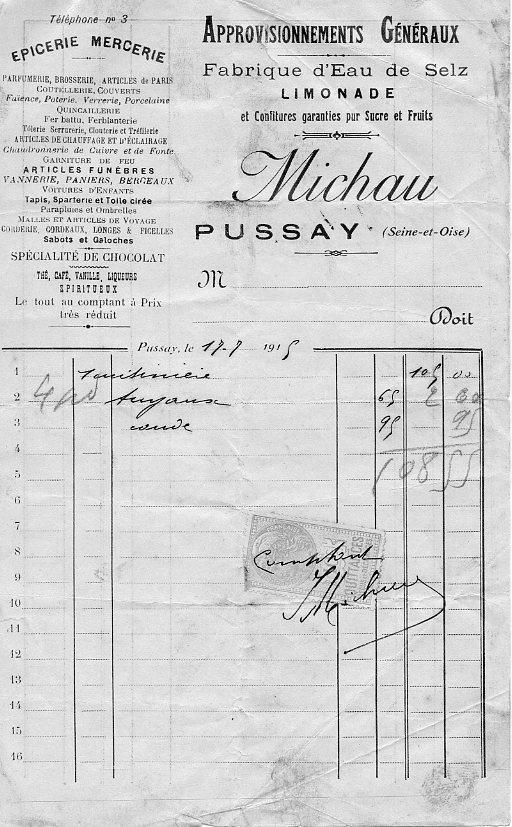 Téléphone nº 3
EPICERIE MERCERIE
PARFUMERIE, BROSSERIE, ARTICLES de PARIS
COUTELLERIE, COUVERTS
Faïence, Poterie, Verrerie, Porcelaine
QUINCAILLERIE
Fer battu, Ferblanterie
Tôlerie Serrurerie, Clouterie et Tréfilerie
ARTICLES DE CHAUFFAGE ET D'ÉCLAIRAGE
Chaudronnerie de Cuivre et de Fonte
GARNITURE DE FEU
ARTICLES FUNÈBRES
VANNERIE, PANIERS, BERCEAUX
VOITURES D'ENFANTS
Tapis, Sparterie et Toile cirée
Parapluies et Ombrelles
MALLES ET ARTICLES DE VOYAGE
CORDERIE, CORDEAUX, LONGES & FICELLES
Sabots et Galoches
SPÉCIALITÉ DE CHOCOLAT
THÉ, CAFÉ, VANILLE, LIQUEURS
SPIRITUEUX
Le tout au comptant à Prix
très réduit
APPROVISIONNEMENTS GÉNÉRAUX
Fabrique d'Eau de Selz
LIMONADE
et Confitures garanties pur Sucre et Fruits
Michau
PUSSAY (Seine-et-Oise)
M
Doit
Pussay, le 17-7 1915
1 1 cuisinière 105 00
2 4 tuyaux 65 2 60
3 coude 95 95
4 108 55
5
6
7
8 Comptant
9
10 Michau
11
12
13
14
15
16